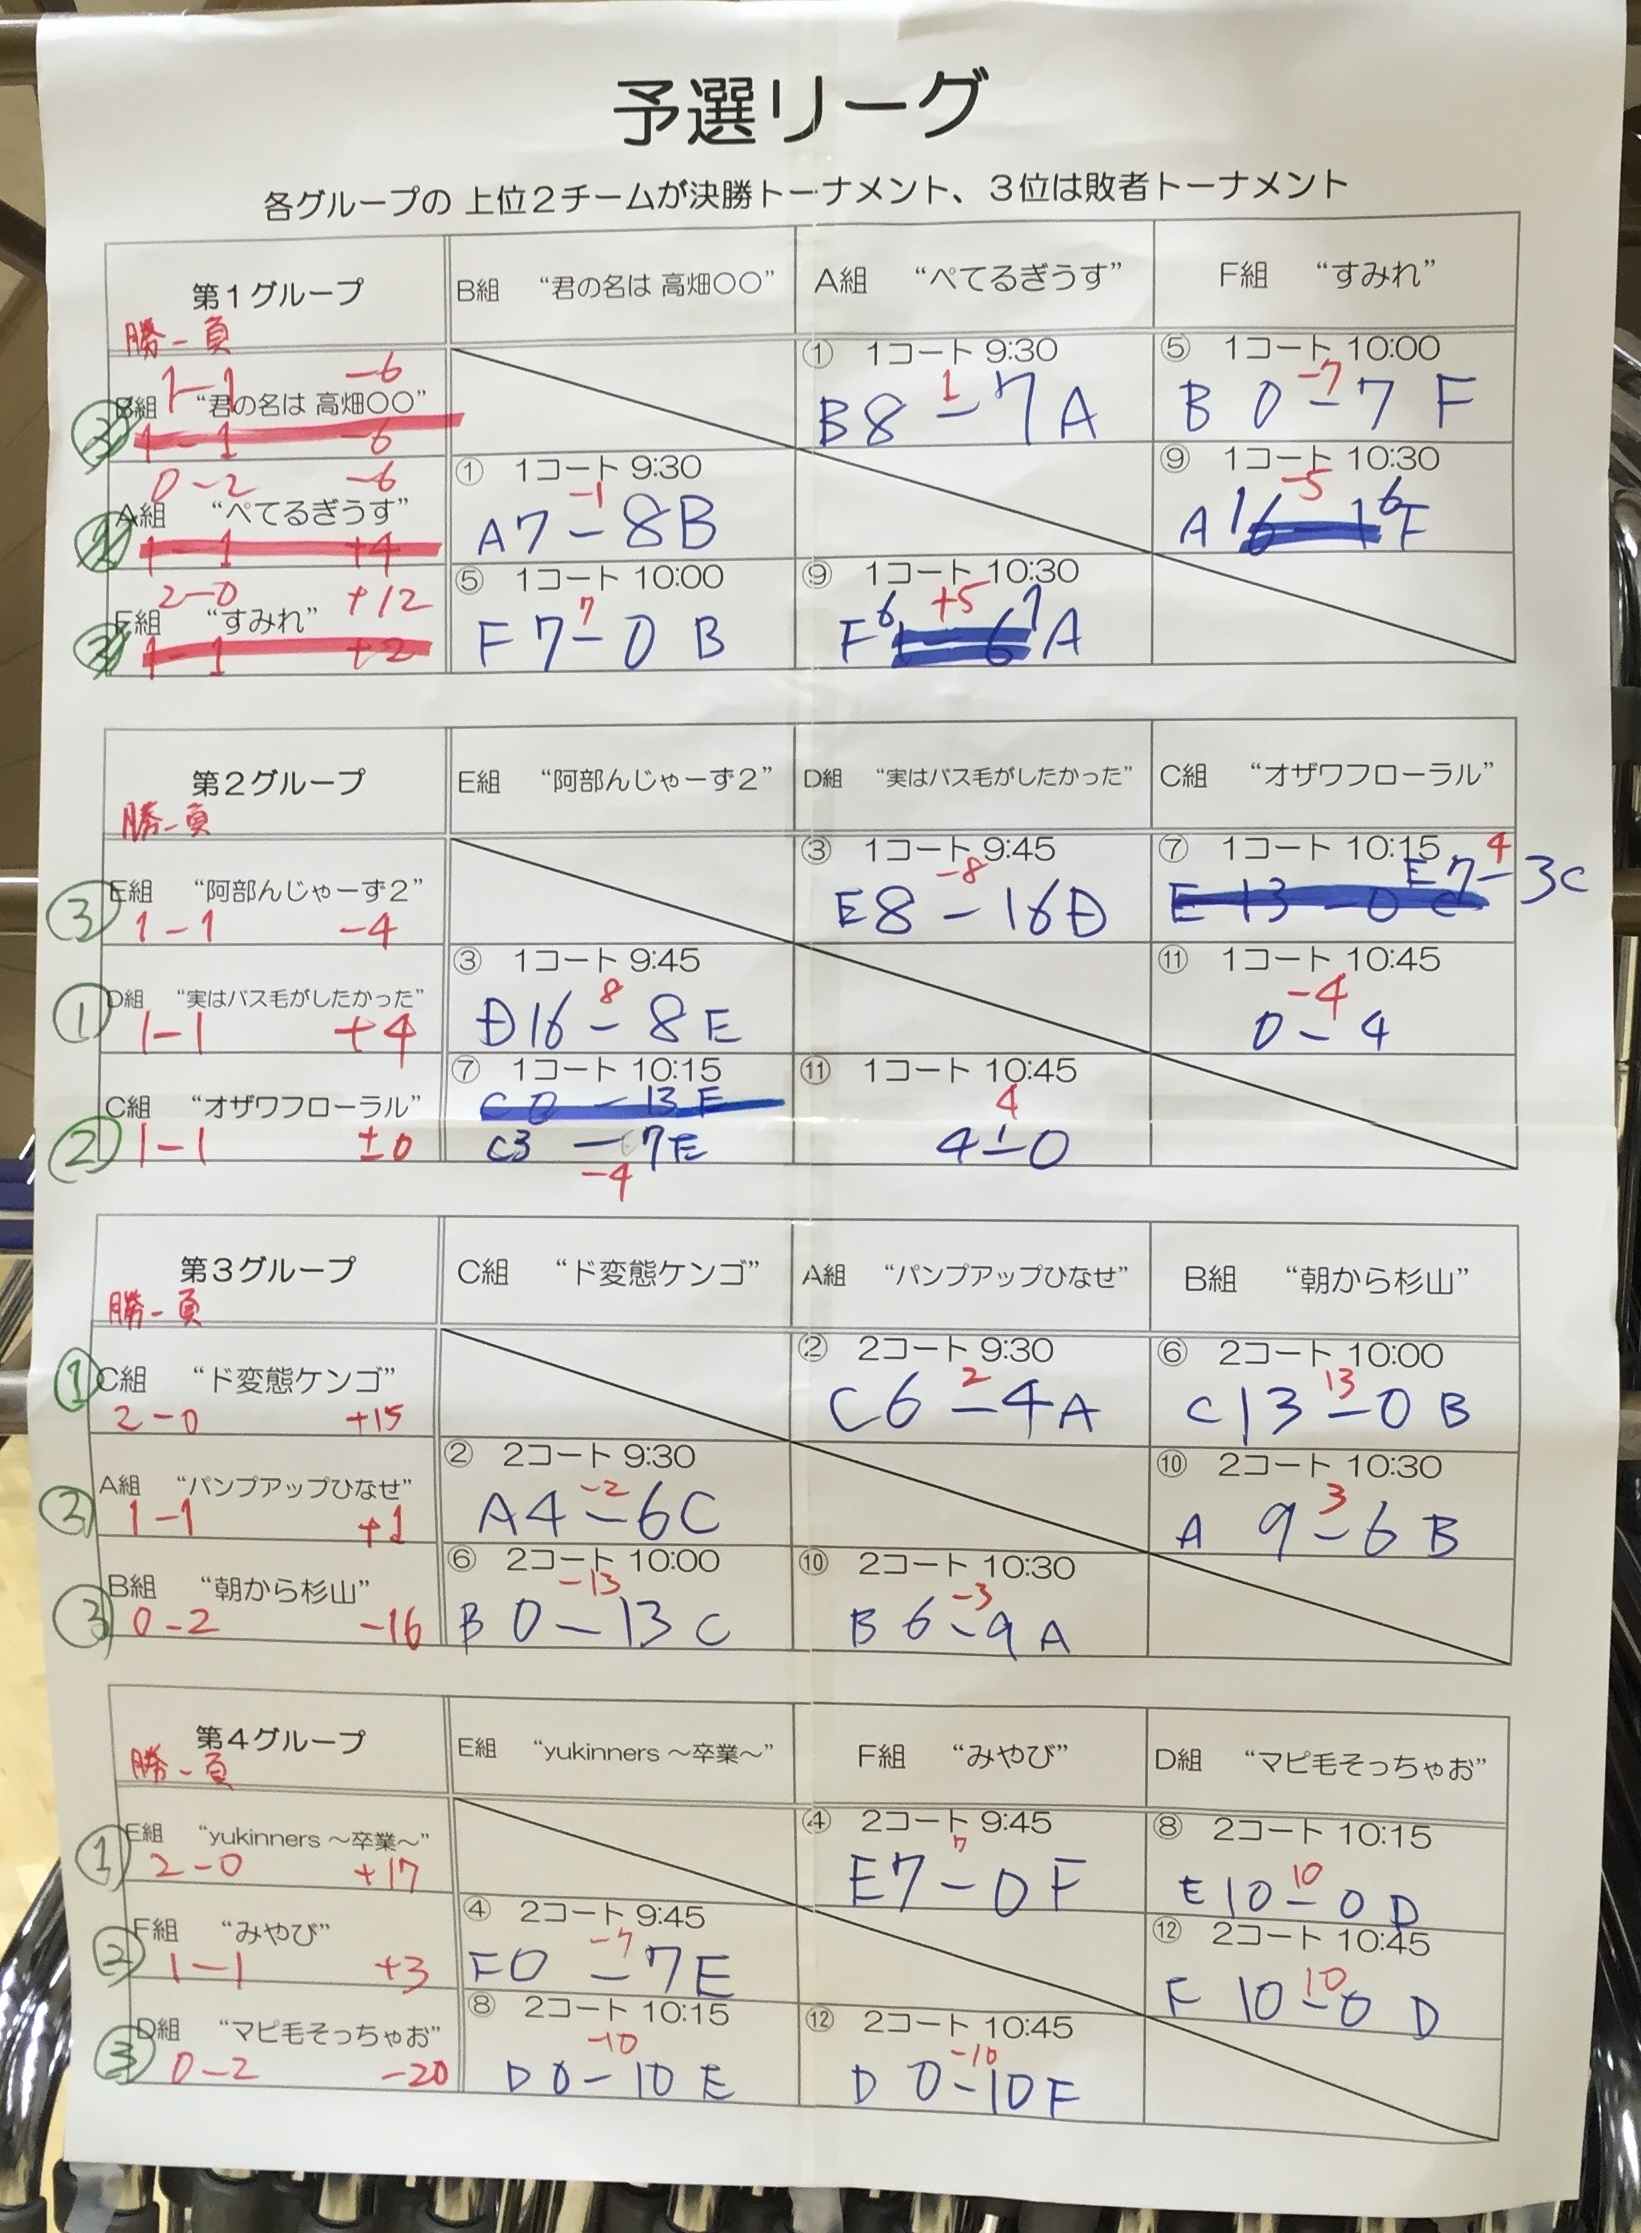 予選リーグ
各グループの 上位２チームが決勝トーナメント、３位は敗者トーナメント
第１グループ
勝－負
B組 “君の名は 高畑〇〇”
A組 “ぺてるぎうす”
F組 “すみれ”
1-1 -6
B組 “君の名は 高畑〇〇”
1-1 -6
① 1コート 9:30
1
B8-7A
⑤ 1コート 10:00
-7
B 0-7 F
0-2 -6
A組 “ぺてるぎうす”
1-1 +4
① 1コート 9:30
-1
A7-8B
⑨ 1コート 10:30
-5
A 1 6 F
2-0 +12
F組 “すみれ”
1-1 +2
⑤ 1コート 10:00
7
F7-0 B
⑨ 1コート 10:30
+5
F 6 1 A
第２グループ
勝－負
E組 “阿部んじゃーず２”
D組 “実はバス毛がしたかった”
C組 “オザワフローラル”
③
E組 “阿部んじゃーず２”
1-1 -4
③ 1コート 9:45
-8
E8-16D
⑦ 1コート 10:15
4
E7-3C
E 13-0 C
①
D組 “実はバス毛がしたかった”
1-1 +4
③ 1コート 9:45
8
D16-8E
⑪ 1コート 10:45
-4
0-4
②
C組 “オザワフローラル”
1-1 ±0
⑦ 1コート 10:15
C 0-13 E
C3-7E
-4
⑪ 1コート 10:45
4
4-0
第３グループ
勝－負
C組 “ド変態ケンゴ”
A組 “パンプアップひなせ”
B組 “朝から杉山”
①
C組 “ド変態ケンゴ”
2-0 +15
② 2コート 9:30
2
C6-4A
⑥ 2コート 10:00
13
C13-0 B
②
A組 “パンプアップひなせ”
1-1 +1
② 2コート 9:30
-2
A4-6C
⑩ 2コート 10:30
3
A 9-6 B
③
B組 “朝から杉山”
0-2 -16
⑥ 2コート 10:00
-13
B 0-13 C
⑩ 2コート 10:30
-3
B 6-9 A
第４グループ
勝－負
E組 “yukinners ～卒業～”
F組 “みやび”
D組 “マピ毛そっちゃお”
①
E組 “yukinners ～卒業～”
2-0 +17
④ 2コート 9:45
7
E7-0F
⑧ 2コート 10:15
10
E10-0 D
②
F組 “みやび”
1-1 +3
④ 2コート 9:45
-7
F0-7E
⑫ 2コート 10:45
10
F 10-0 D
③
D組 “マピ毛そっちゃお”
0-2 -20
⑧ 2コート 10:15
-10
D 0-10 E
⑫ 2コート 10:45
-10
D 0-10F